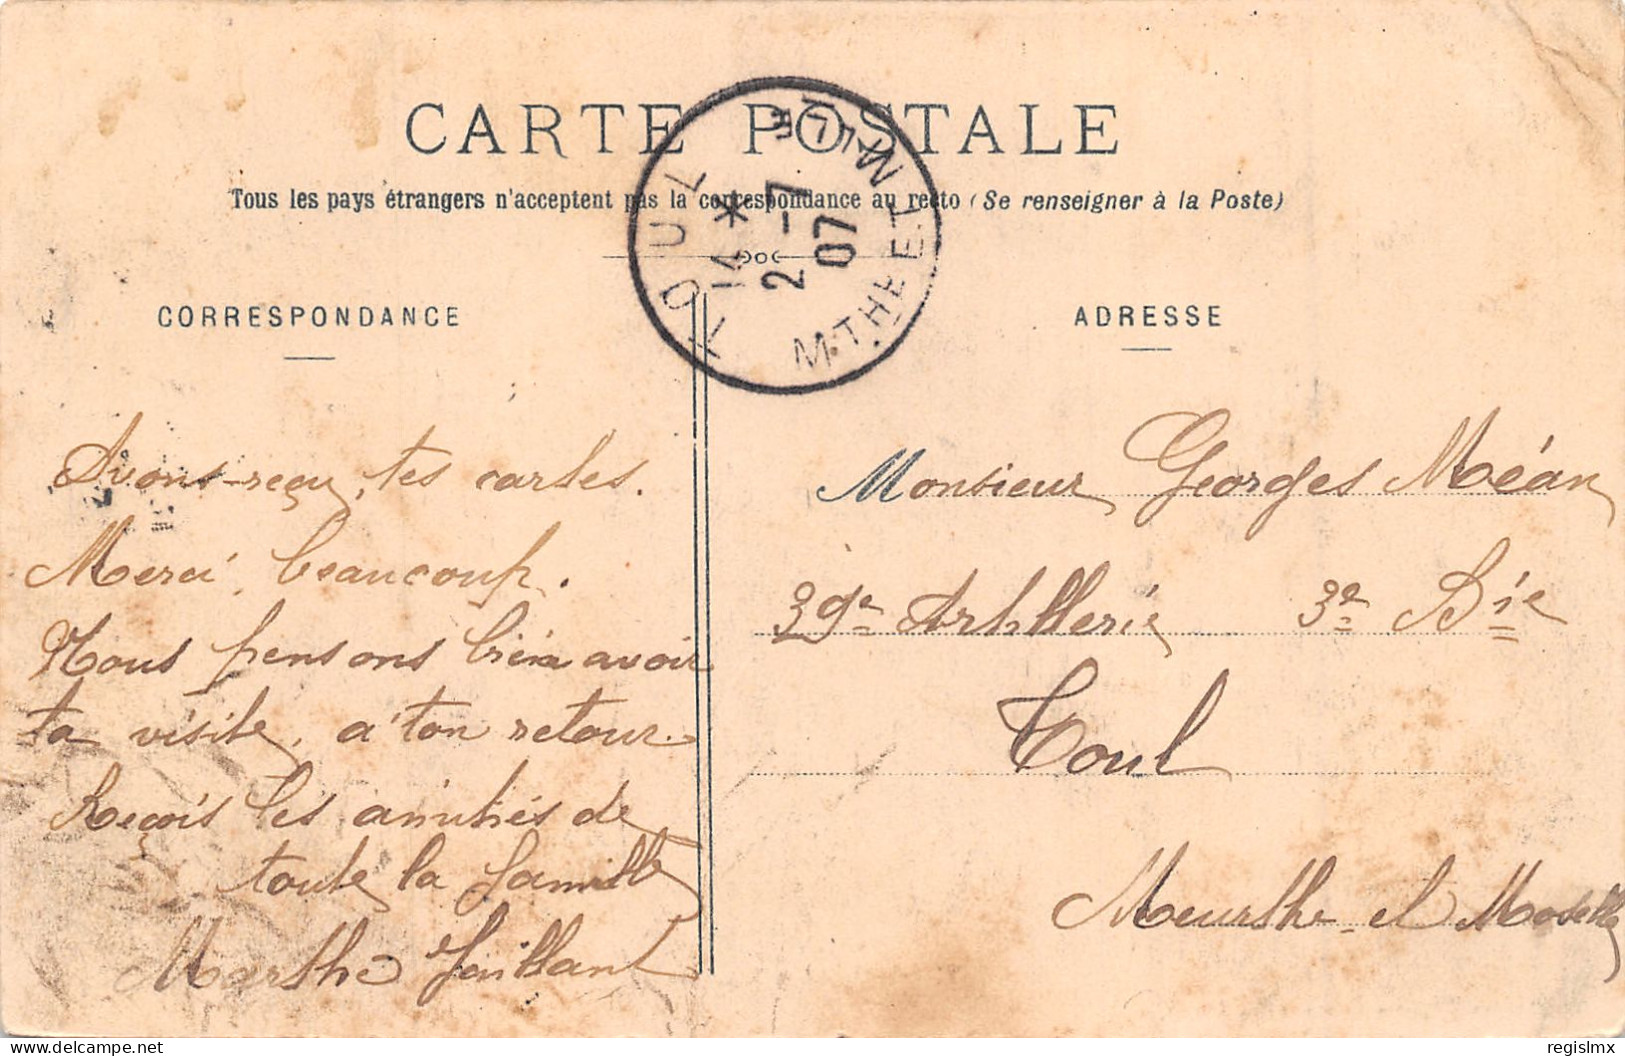 CARTE POSTALE
Tous les pays étrangers n'acceptent pas la correspondance au recto (Se renseigner à la Poste)
TOUL
14 *
2 - 7
07
MTHE ET MLLE
CORRESPONDANCE
Avons-reçu, tes cartes.
Merci, beaucoup.
Nous pensons bien avoir
ta visite, à ton retour.
Reçois les amitiés de
toute la famille
Marthe Jaillant
ADRESSE
Monsieur Georges Méan
39e Artillerie 3e Bie
Toul
Meurthe-et Moselle
regislmx